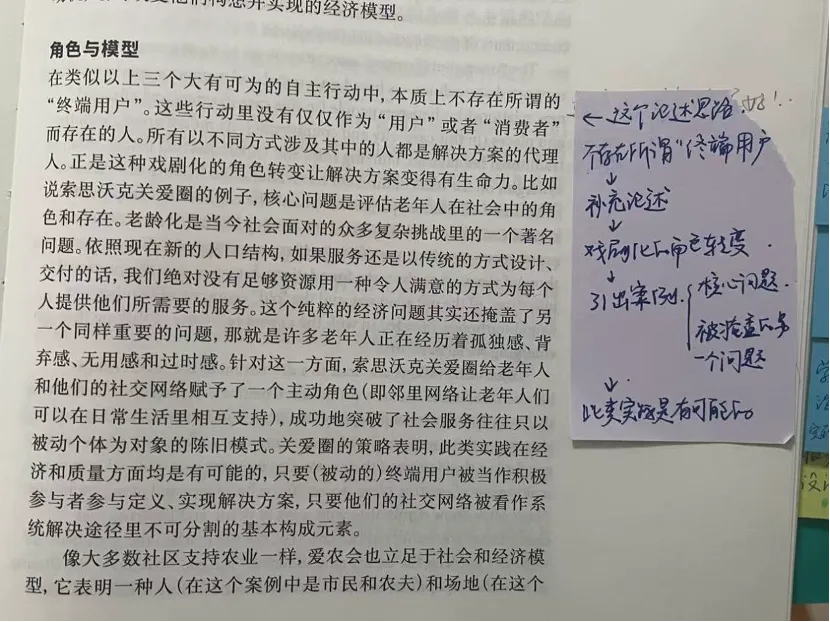 们构想并实现的经济模型。
角色与模型
在类似以上三个大有可为的自主行动中，本质上不存在所谓的
“终端用户”。这些行动里没有仅仅作为“用户”或者“消费者”
而存在的人。所有以不同方式涉及其中的人都是解决方案的代理
人。正是这种戏剧化的角色转变让解决方案变得有生命力。比如
说索思沃克关爱圈的例子，核心问题是评估老年人在社会中的角
色和存在。老龄化是当今社会面对的众多复杂挑战里的一个著名
问题。依照现在新的人口结构，如果服务还是以传统的方式设计、
交付的话，我们绝对没有足够资源用一种令人满意的方式为每个
人提供他们所需要的服务。这个纯粹的经济问题其实还掩盖了另
一个同样重要的问题，那就是许多老年人正在经历着孤独感、背
弃感、无用感和过时感。针对这一方面，索思沃克关爱圈给老年人
和他们的社交网络赋予了一个主动角色（即邻里网络让老年人们
可以在日常生活里相互支持），成功地突破了社会服务往往只以
被动个体为对象的陈旧模式。关爱圈的策略表明，此类实践在经
济和质量方面均是有可能的，只要（被动的）终端用户被当作积极
参与者参与定义、实现解决方案，只要他们的社交网络被看作系
统解决途径里不可分割的基本构成元素。
像大多数社区支持农业一样，爱农会也立足于社会和经济模
型，它表明一种人（在这个案例中是市民和农夫）和场地（在这个
←这个论述思路
不存在所谓“终端用户
↓
补充论述
↓
戏剧化的角色转变.
↓
引出案例. 核心问题.
被掩盖的另
一个问题
↓
此类实践是有可能的